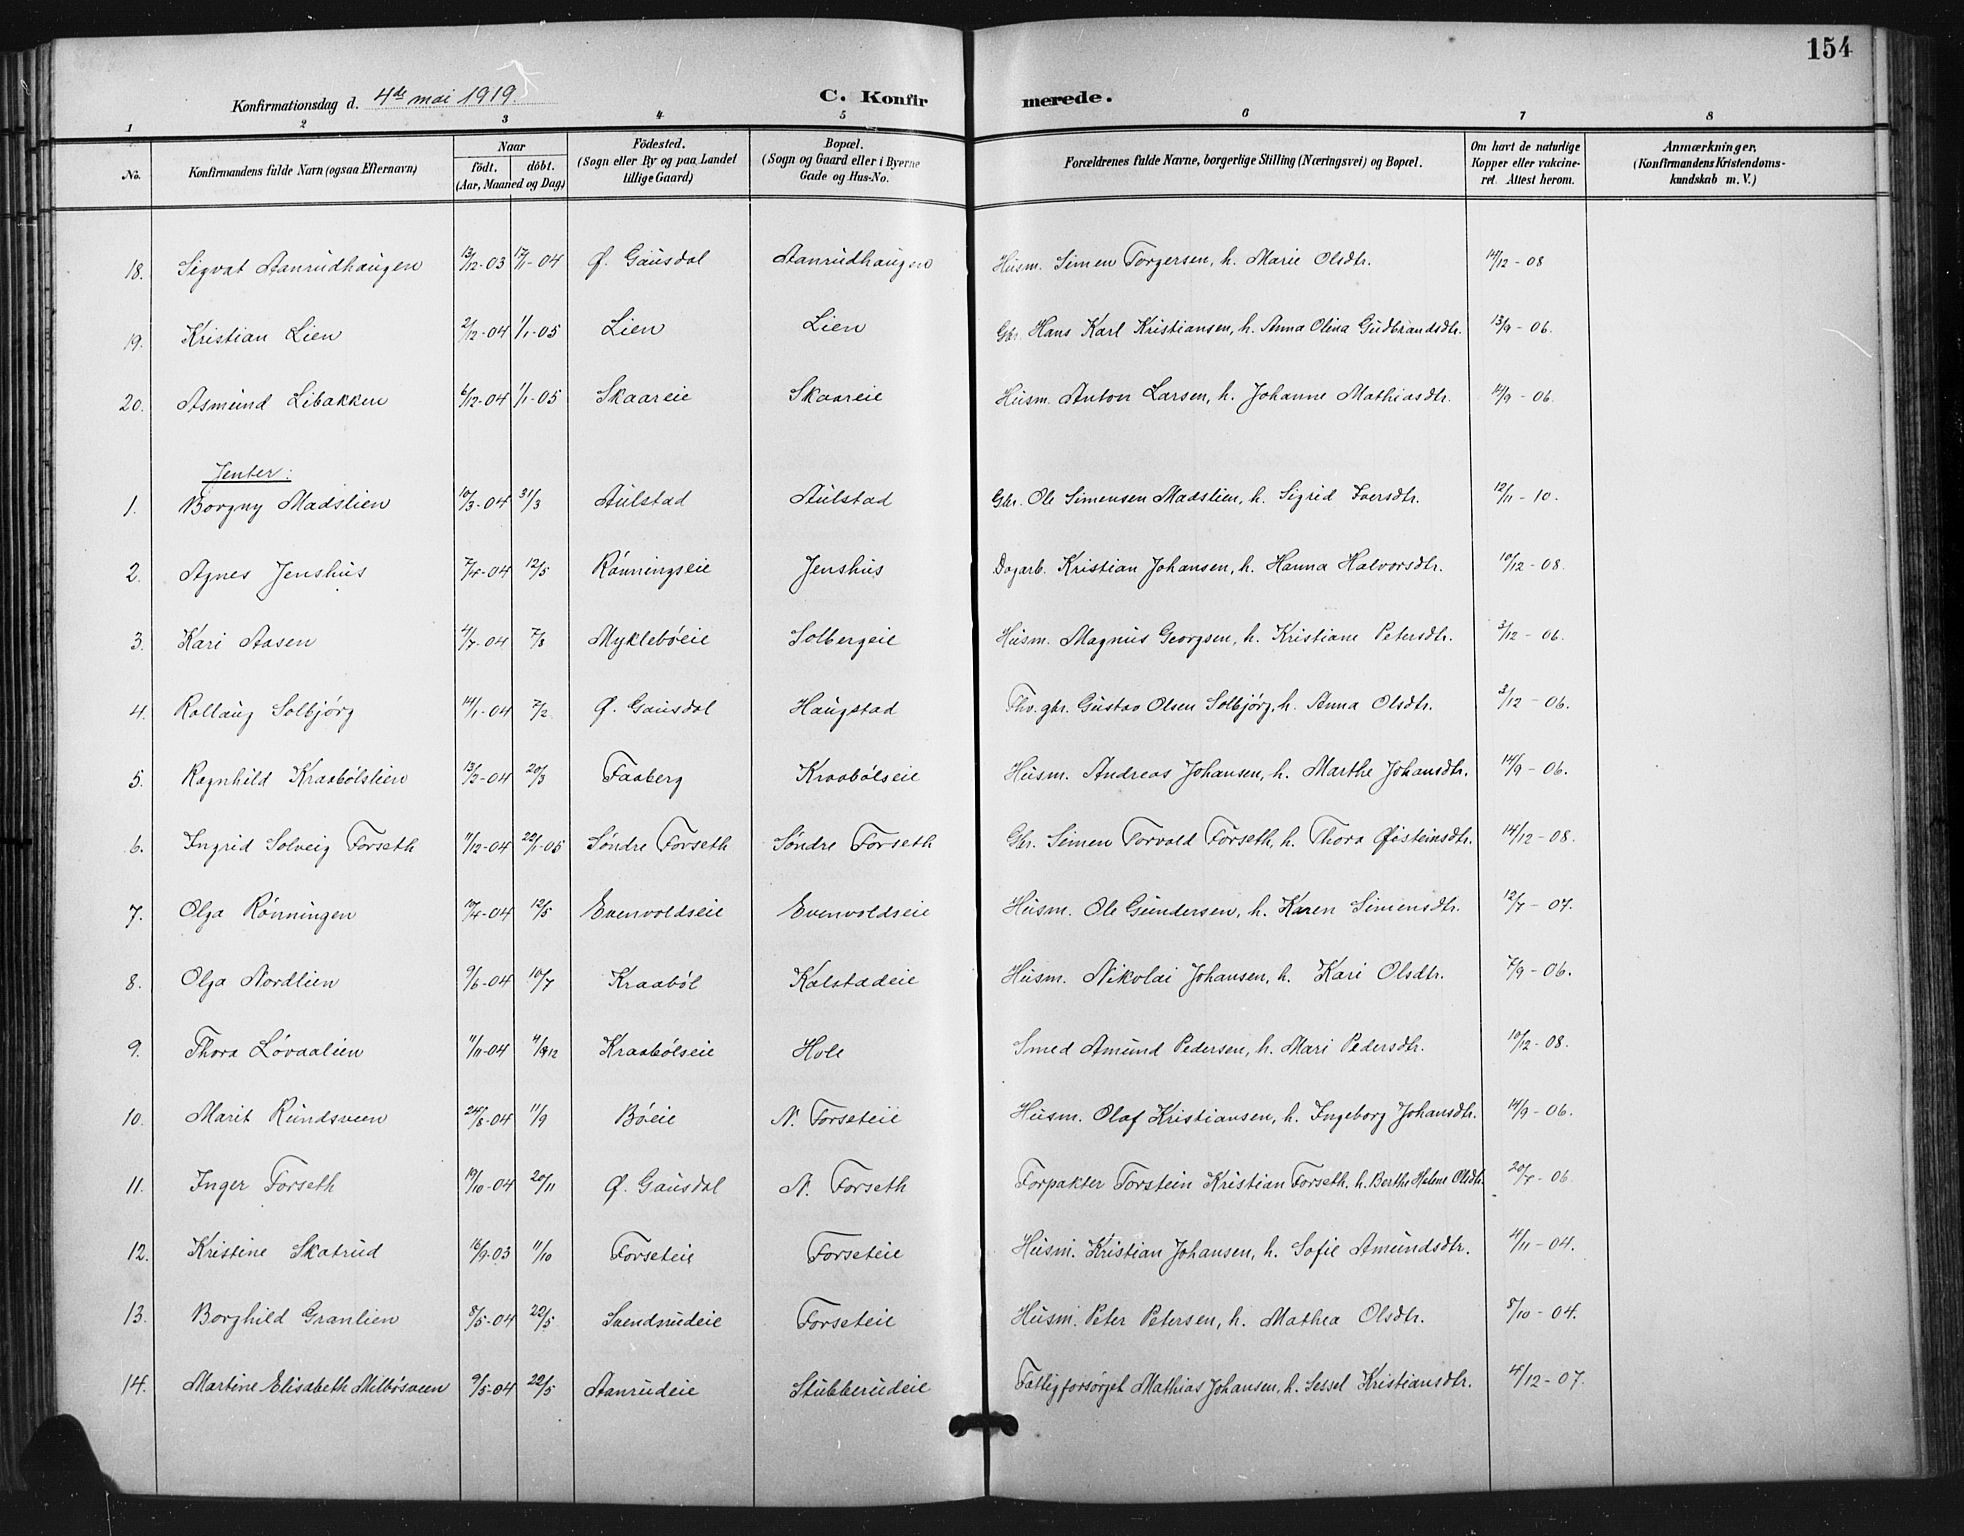 154
Konfirmationsdag d. 4de mai 1919. C. Konfirmerede.
1 2 3 4 5 6 7 8
No. Konfirmandens fulde Navn (ogsaa Efternavn) Naar födt. döbt. (Aar, Maaned og Dag) Födested. (Sogn eller By og paa Landet tillige Gaard.) Bopæl. (Sogn og Gaard eller i Byerne Gade og Hus-No. Forældrenes fulde Navne, borgerlige Stilling (Næringsvei) og Bopæl. Om havt de naturlige Kopper eller vakcineret. Attest herom. Anmærkninger, (Konfirmandens Kristendomskundskab m. V.)
18. Sigvat Aanrudhaugen 13/12-03 17/1-04 Ø. Gausdal Aanrudhaugen Husm. Simen Torgersen, h. Marie Olsdtr. 14/12-08
19. Kristian Lien 2/12-04 1/1-05 Lien Lien Gbr. Hans Karl Kristiansen, h. Anna Olina Gudbrandsdtr. 13/9-06.
20. Asmund Libakken 6/12-04 1/1-05 Skaareie Skaareie Husm. Anton Larsen, h. Johanne Mathiasdtr. 14/9-06.
Jenter:
1. Borgny Madslien 10/3-04 31/3 Aulstad Aulstad Gbr. Ole Simensen Madslien, h. Sigrid Iversdtr. 12/11-10.
2. Agnes Jenshus 7/4-04 12/5 Rønningseie Jenshus Dagarb. Kristian Johansen, h. Hanna Halvorsdtr. 10/12-08.
3. Kari Aasen 4/7-04 7/8 Myklebøeie Solbergeie Husm. Magnus Georgsen, h. Kristiane Petersdtr. 3/12-06.
4. Rollaug Solbjørg 14/1-04 7/2 Ø. Gausdal Haugstad Thv. gbr. Gustav Olsen Solbjørg, h. Anna Olsdtr. 3/12-06.
5. Ragnhild Kraabølslien 13/2-04 20/3 Faaberg Kraabølseie Husm. Andreas Johansen, h. Marthe Johansdtr. 14/9-06.
6. Ingrid Solveig Forseth 11/12-04 22/1-05 Søndre Forseth Søndre Forseth Gbr. Simen Torvald Forseth, h. Thora Øisteinsdtr. 14/12-08.
7. Olga Rønningen 10/4-04 12/5 Evenvoldseie Evenvoldseie Husm. Ole Gundersen, h. Karen Simensdtr. 12/7-07.
8. Olga Nordlien 9/6-04 10/7 Kraabøl Kalstadeie Husm. Nikolai Johansen, h. Kari Olsdtr. 7/9-06.
9. Thora Løvaalien 11/11-04 11/12 Kraabølseie Hole Smed Amund Pedersen, h. Mari Pedersdtr. 10/12-08.
10. Marit Rundsveen 24/8-04 11/9 Bøeie N. Forseteie Husm. Olaf Kristiansen, h. Ingeborg Johansdtr. 14/9-06.
11. Inger Forseth 19/10-04 20/11 Ø. Gausdal N. Forseth Forpakter Torstein Kristian Forseth. h. Berthe Helene Olsdtr. 20/7-06.
12. Kristine Skatrud 16/9-03 11/10 Forseteie Forseteie Husm. Kristian Johansen, h. Sofie Amundsdtr. 4/11-04.
13. Borghild Granlien 8/5-04 22/5 Svendsrudeie Forseteie Husm. Peter Petersen, h. Mathea Olsdtr. 8/10-04.
14. Martine Elisabeth Melbøsveen 9/5-04 22/5 Aanrudeie Stubberudeie Fattigforsørget Mathias Johansen, h. Sessel Kristiansdtr. 4/12-07.